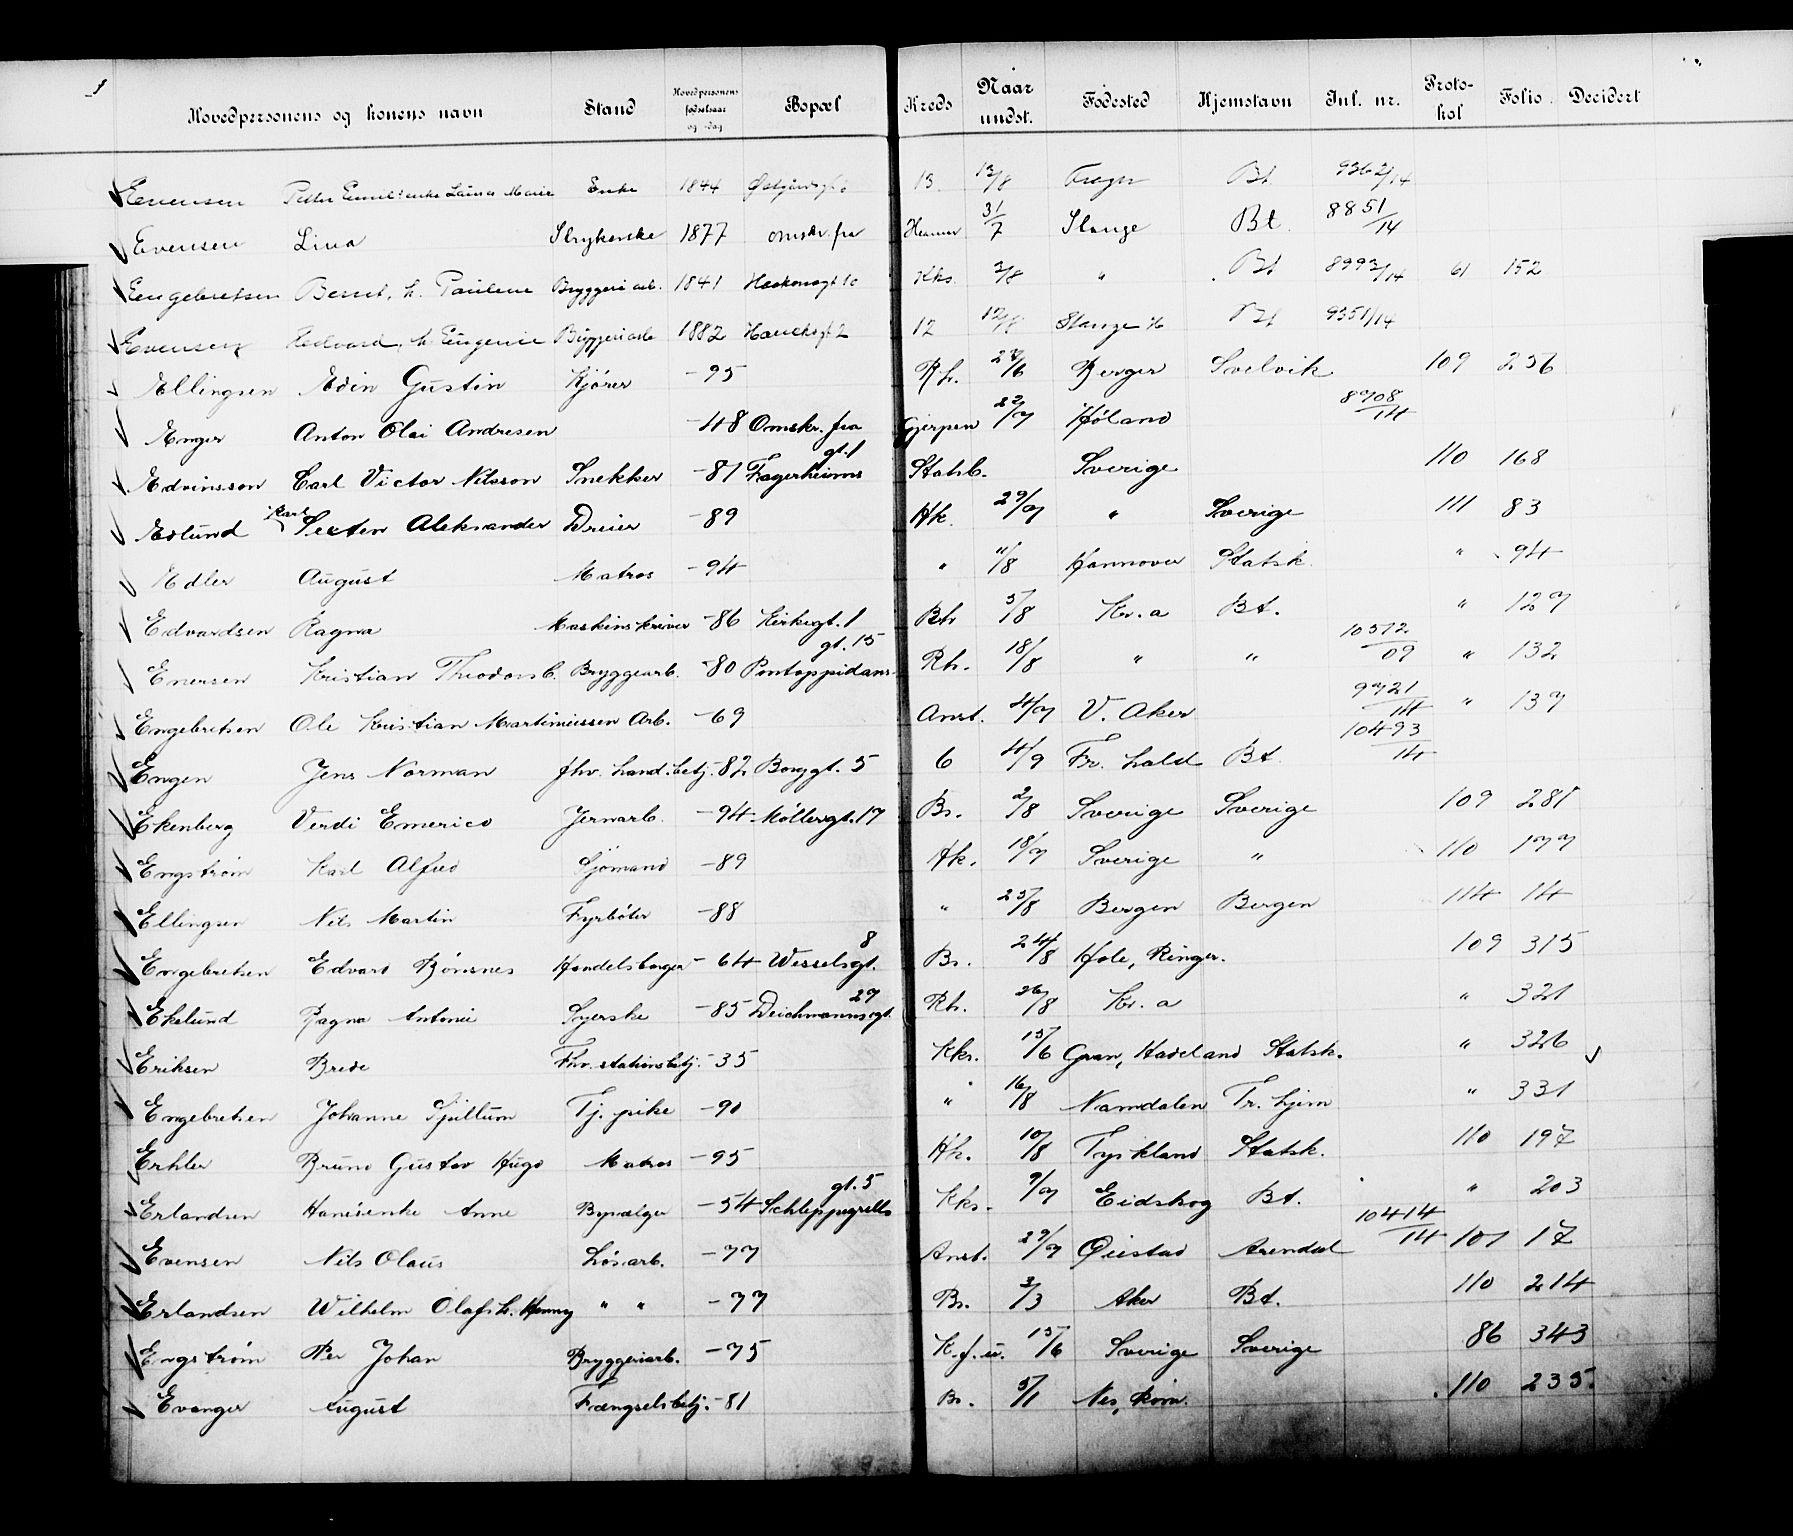 Hovedpersonens og konens navn Stand Hovedpersonens fødselsaar og -dag Bopæl Kreds Naar undst. Fødested Hjemstavn Jnl. nr. Protokol Folio Decidert
Evensen Petter Emil's enke Laura Marie Enke 1844 13. 12/8 Bt 9362/14
Evensen Lina Strykerske 1877 omskr. fra Hamar 31/7 Stange Bt. 8851/14
Engebretsen Bernt, h. Pauline Bryggeriarb. 1841 Haakonsgt 10 Kks. 3/8 " Bt 8993/14 61 152
Evensen Hedvard, h. Eugenie Bryggeriarb 1882 Hauchsgt 2 12 12/8 Stange H Bt 9351/14
Ellingsen Edin Gustin Kjører -95 Rh. 27/6 Berger Svelvik 109 256
Enger Anton Olai Andresen -48 Omskr. fra Gjerpen 22/7 Høland 8708/14
Edvinsson Carl Victor Nilsson Snekker -81 Fagerheims gt. 1 Stahb. Sverige 110 168
Edlund Karl Sixten Aleksander Dreier -89 Hk. 29/7 " Sverige 111 83
Edler August Matros -94 " 11/8 Hannover Statsk. " 94
Edvardsen Ragna Maskinskriver -86 Kirkegt. 1 Bh 5/8 Kr.a Bt. " 127
Enersen Kristian Theodor b. Bryggearb. -80 Pontoppidans gt. 15 Rh. 18/8 " " 10572/09 " 132
Engebretsen Ole Kristian Martinussen Arb. -69 Anst. 4/7 V. Aker 9721/14 " 137
Engen Jens Norman fhv. hand.betj. -82 Borggt. 5 6 4/9 Fr. hald Bt. 10493/14
Ekenberg Verdi Emerico Jernarb. -94 Møllergt. 17 Br. 2/8 Sverige Sverige 109 281
Engstrøm Karl Alfred Sjømand -89 Hk. 18/7 Sverige " 110 177
Ellingsen Nils Martin Fyrbøter -88 " 25/8 Bergen Bergen 114 14
Engebretsen Edvard Bønsnes Handelsborger -64 Wesselsgt. 8 Br. 24/8 Hole, Ringer. 109 315
Ekelund Ragna Antonie Syerske -85 Deichmannsgt. 27 Rh. 26/8 Kr.a " 321
Eriksen Brede Fhv. stationsbetj. -35 Kks. 15/6 Gran, Hadeland Statsk. " 326
Engebretsen Johanne Spillum Tj. pike -90 " 16/8 Namdalen Tr. hjem " 331
Erhler Bruno Gustav Hugo Matros -95 Hk. 10/8 Tyskland Statsk. 110 197
Erlandsen Hans' enke Anne Bysælger -54 Schleppegrells gt. 5 Kks. 9/7 Eidskog Bt. " 203
Evensen Nils Olaus Løsarb. -77 Anst. 29/7 Øiestad Arendal 10414/14 101 17
Erlandsen Wilhelm Olaf, h. Henny " " -77 Br. 3/3 Aker Bt. 110 214
Engstrøm Per Johan Bryggeriarb. -75 K.f.u. 15/6 Sverige Sverige 86 343
Evanger August Fængselsbetj. -81 Br. 5/1 Nes, Rom. 110 235.